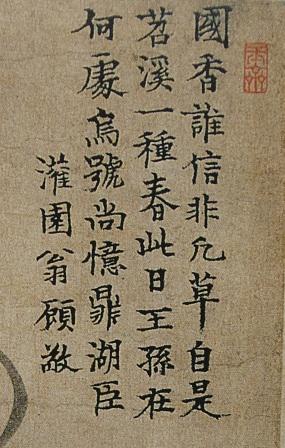 國香誰信非凡草自是
苕溪一種春此日王孫在
何處烏號尚憶鼎湖臣
灌園翁顧敬